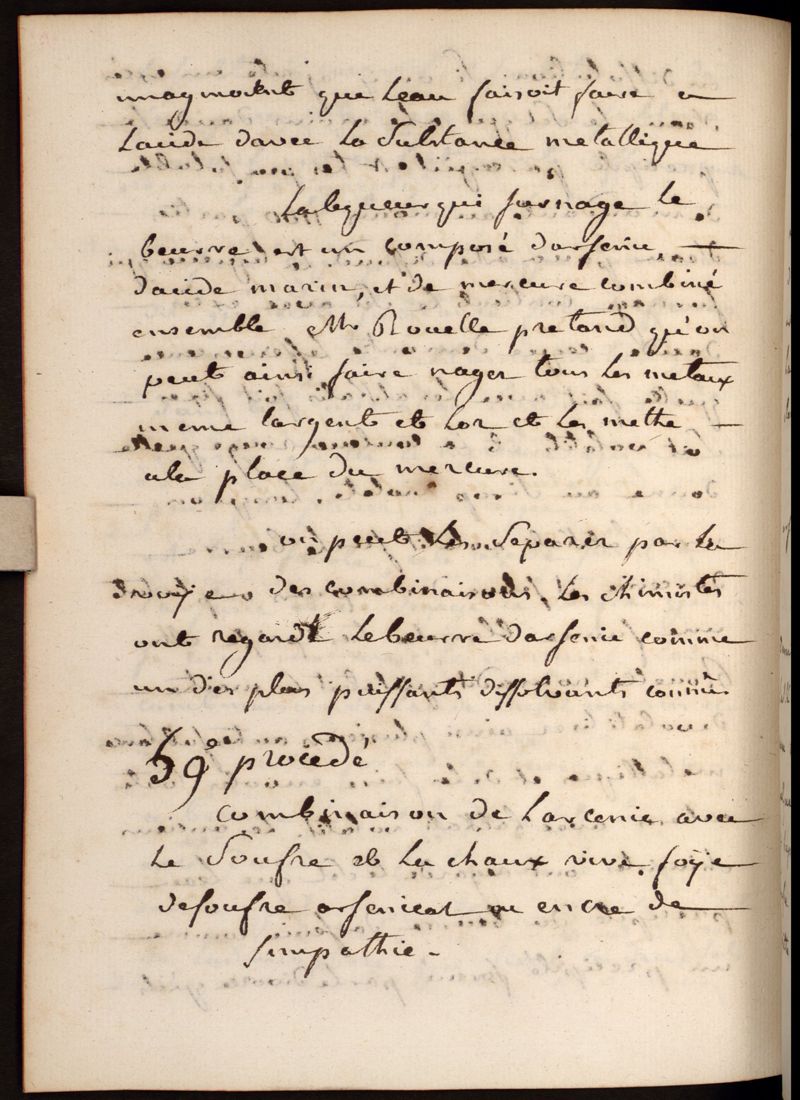 imaginoient que leau faisoit faire a
lacide davec la substance metallique
La liqueur qui surnage le
beurre est un composé darsenic
dacide marin, et de mercure combiné
ensemble Mr Rouelle pretand qu'on
peut ainsi faire nager tous les metaux
meme largent et lor et les mettre
ala place du mercure.
on peut les separer par la
voye des combinaisons. Les chimistes
ont regardé le beurre darsenic comme
un des plus puissants dissolvants connu.
59e procedé
Combinaison de Larcenic avec
le Soufre et La chaux vive. foÿe
desoufre arsenical ou encre de
simpathie.